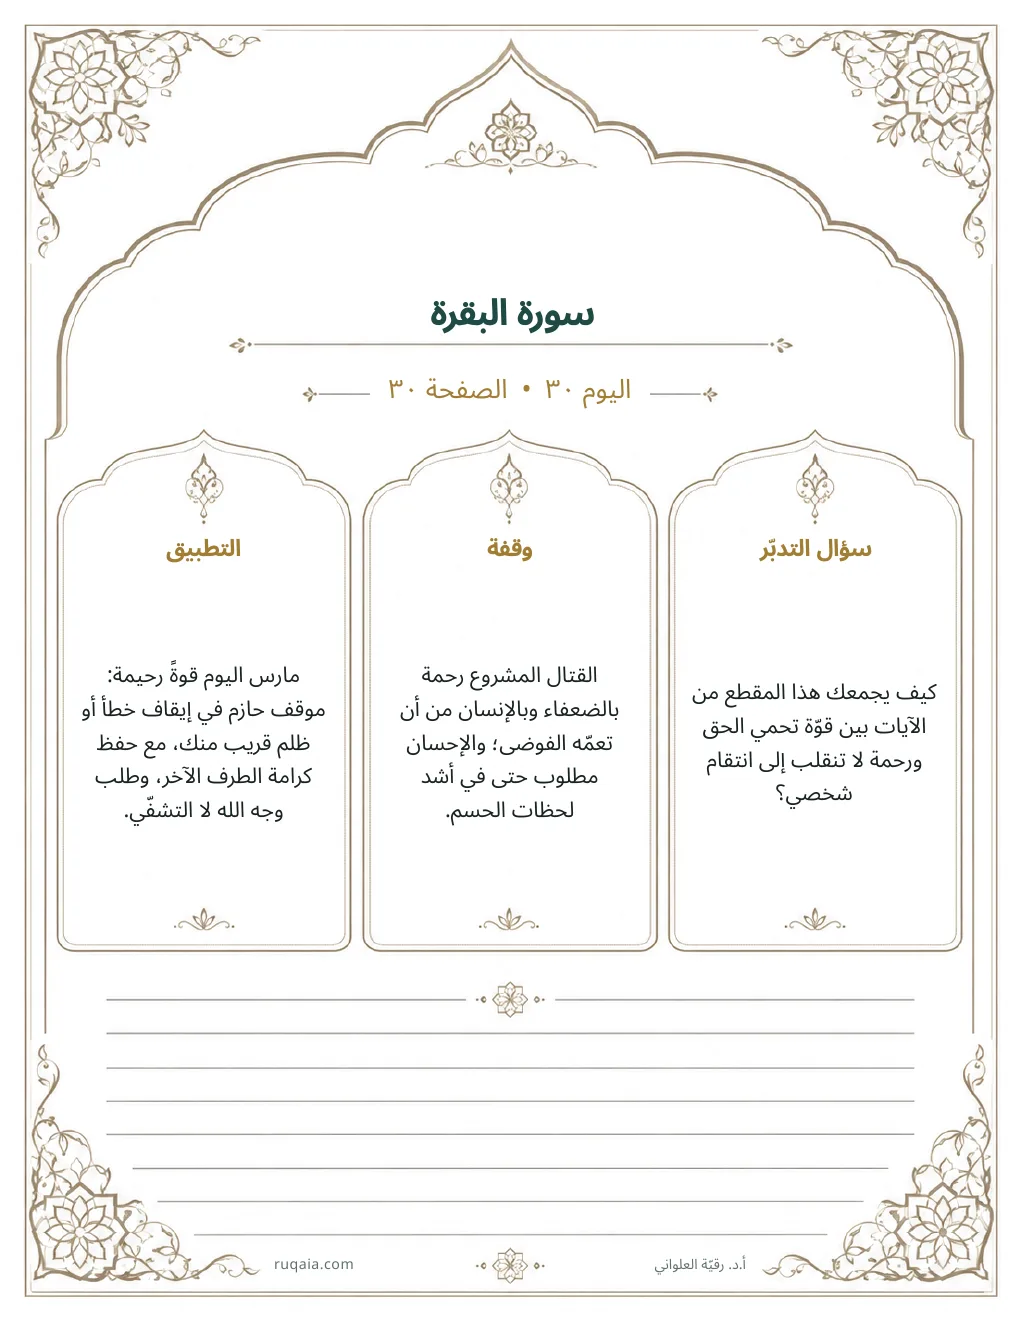 سورة البقرة
اليوم ٣٠ • الصفحة ٣٠
سؤال التدبّر
كيف يجمعك هذا المقطع من
الآيات بين قوّة تحمي الحق
ورحمة لا تنقلب إلى انتقام
شخصي؟
وقفة
القتال المشروع رحمة
بالضعفاء وبالإنسان من أن
تعمّه الفوضى؛ والإحسان
مطلوب حتى في أشد
لحظات الحسم.
التطبيق
مارس اليوم قوةً رحيمة:
موقف حازم في إيقاف خطأ أو
ظلم قريب منك، مع حفظ
كرامة الطرف الآخر، وطلب
وجه الله لا التشفّي.
أ.د. رقيّة العلواني
ruqaia.com